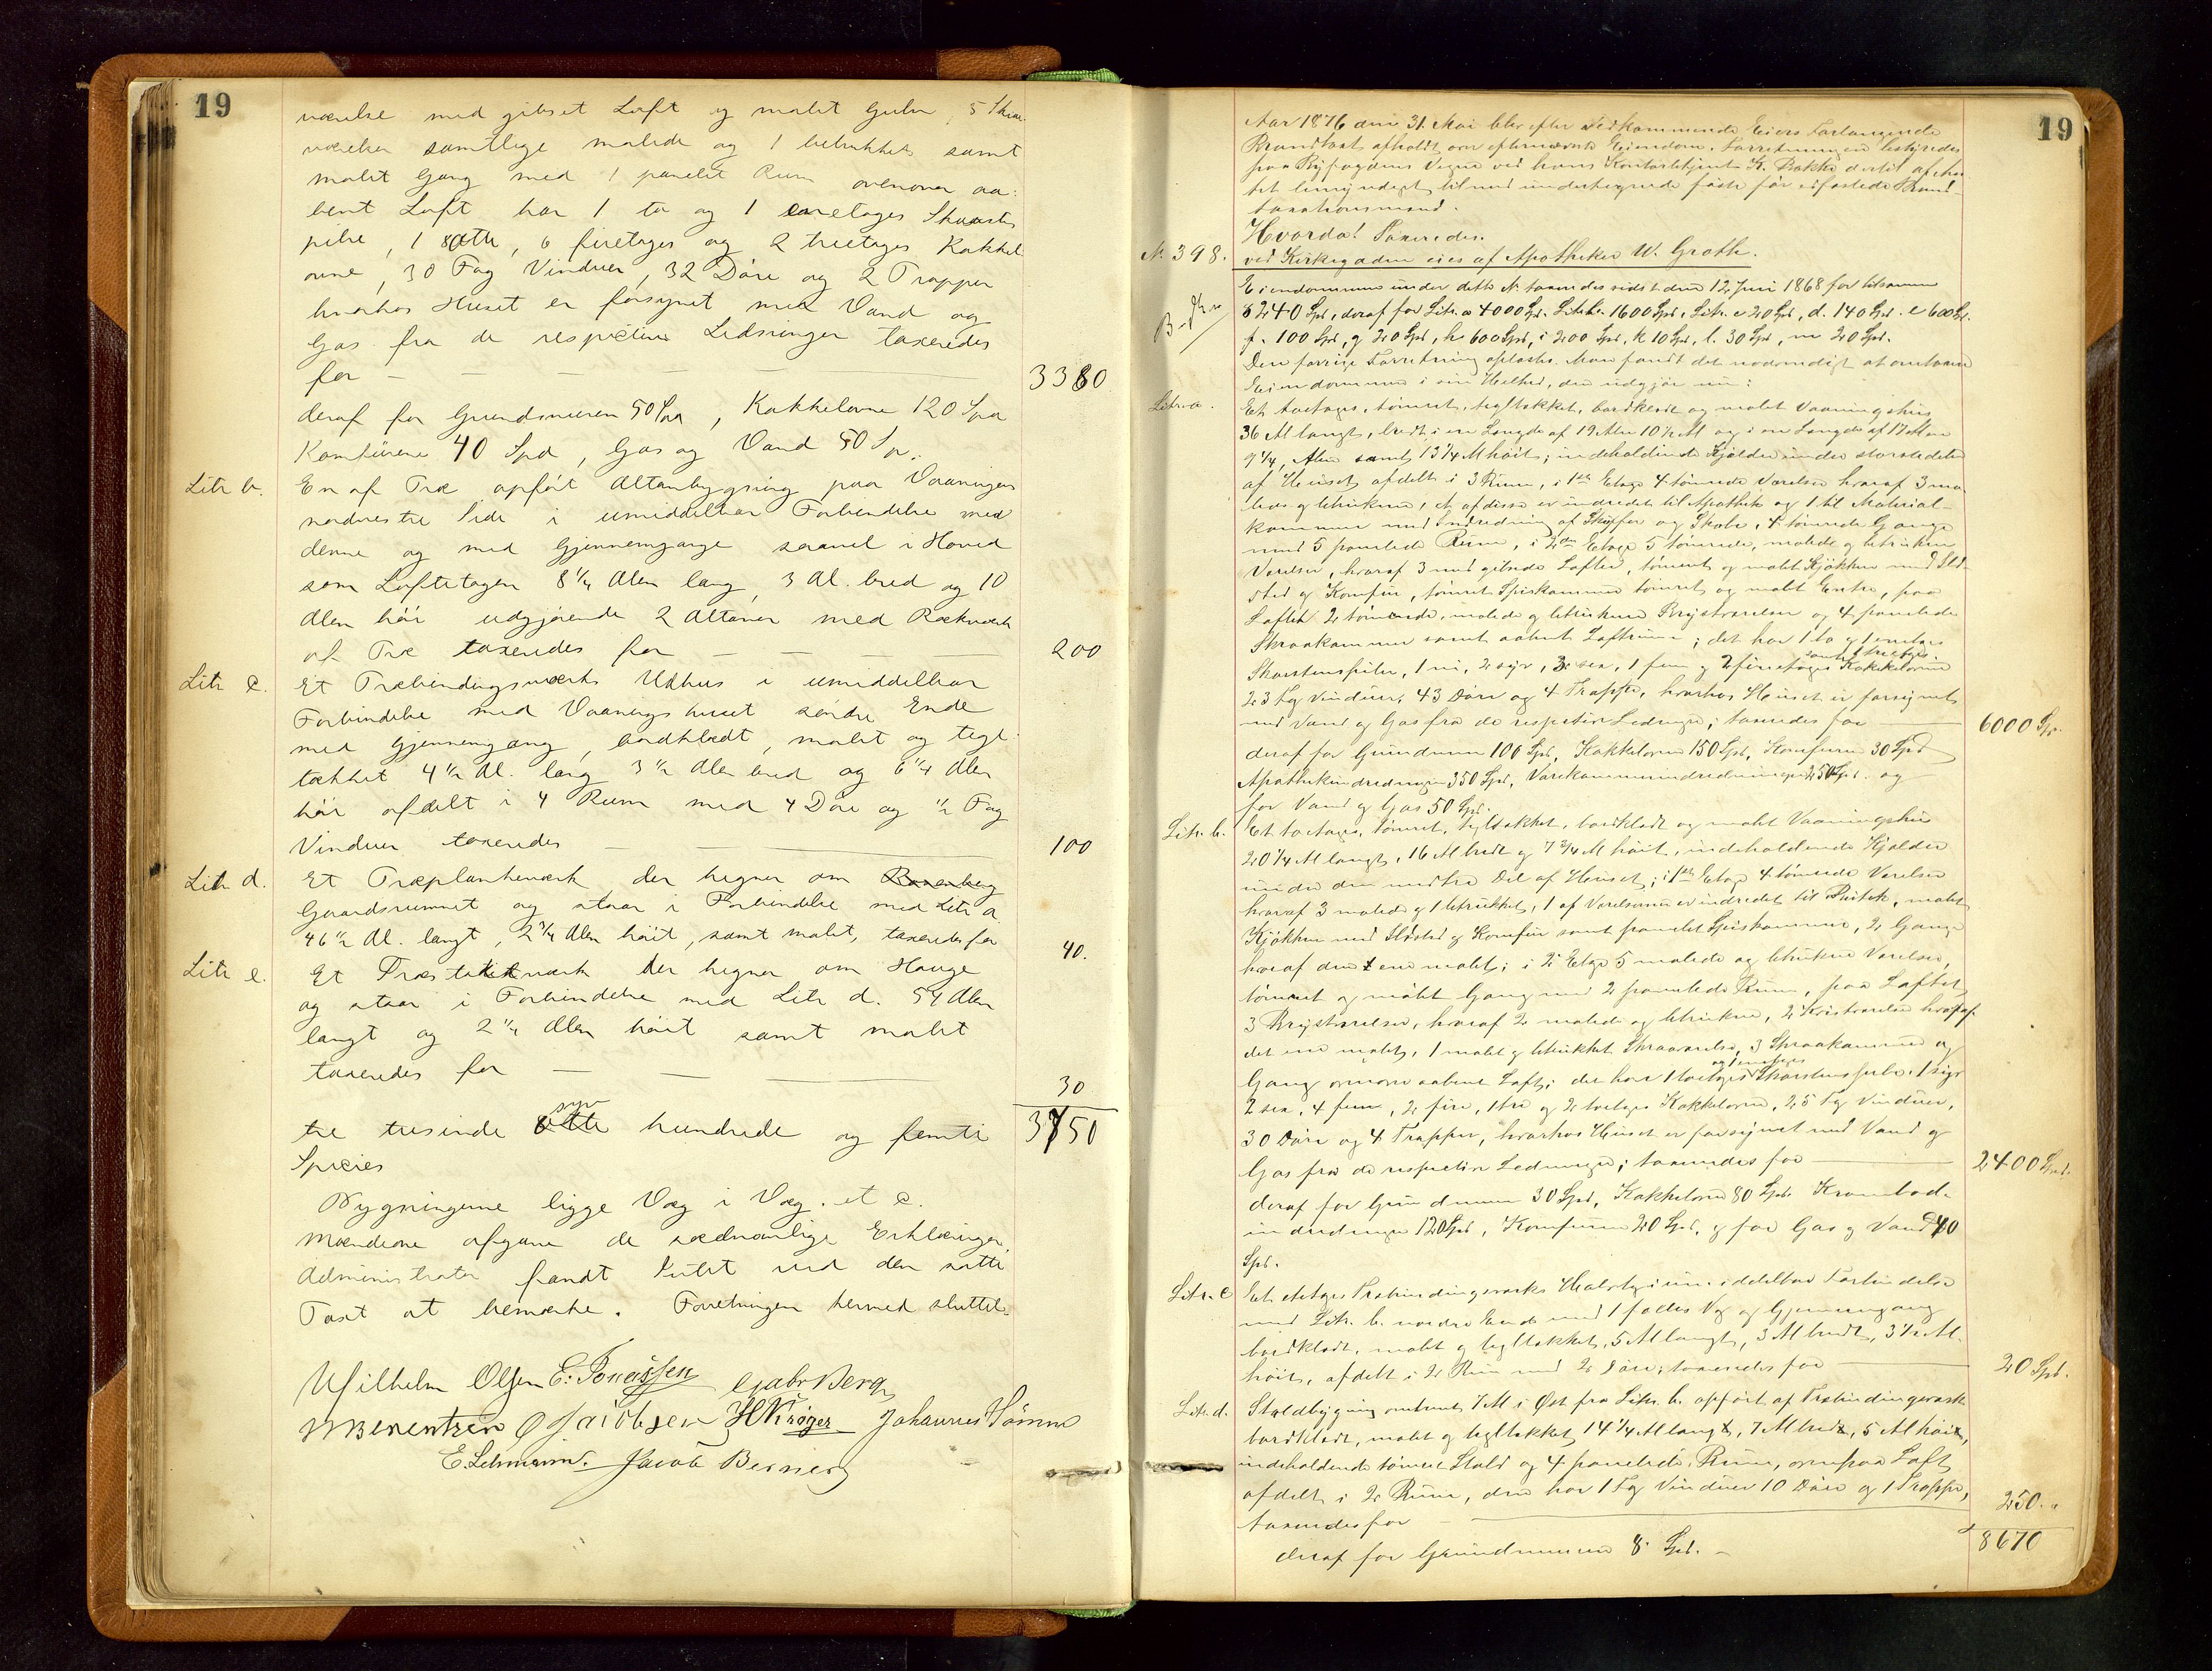 19
værelse med gibset Loft og malet Gulv, 5 Skraa
værelser samtlige malede og 1 betrukket samt
malet Gang med 1 panelet Rum ovenover aa-
bent Loft har 1 to og 1 eenetages Skorsten
piber, 1 8tte, 6 fireetages og 2 treetages Kakkel
ovne, 30 Fag Vinduer, 32 Döre og 2 Trapper
hvorhos Huset er forsynet med Vand og
Gas fra de respective Ledninger taxeredes
for — — — — 3380
deraf for Grundmuren 50 Spd, Kakkelovne 120 Spd
Komfürene 40 Spd, Gas og Vand 50 Sp.
Litr b. En af Træ opfört Altanbygning paa Vaaningens
nordvestre Side i umiddelbar Forbindelse med
denne og med Gjennemgange saavel i Hoved
som Loftetagen 8 1/4 Alen lang, 3 Al. bred og 10
Alen höi udgjörende 2 Altaner med Rækværk
af Træ taxeredes for — — — 200
Litr c. Et Træbindingsværks Udhus i umiddelbar
Forbindelse med Vaaningshuset söndre Ende
med Gjennemgang, bordklædt, malet og tegl-
tækket 4 1/2 Al. lang 3 1/2 Alen bred og 6 1/4 Alen
höi afdelt i 4 Rum med 4 Döre og 1/2 Fag
Vinduer taxeredes — — 100
Litr d. Et Træplankeværk der hegner om
Gaardsrummet og staar i Forbindelse med Litr a
46 1/2 Al. langt, 2 3/4 Alen höit, samt malet, taxeredes for 40.
Litr e. Et Træstakitværk der hegner om Hauge
og staar i Forbindelse med Litr d. 54 Alen
langt og 2 1/4 Alen höit samt malet
taxeredes for — — — 30
syv
tre tusinde otte hundrede og femti 3750
Species
Bygningerne ligge Væg i Væg. et c.
Mændene afgave de sædvanlige Erklæringer,
Administrator fandt Intet ved den satte
Taxt at bemærke. Forretningen hermed sluttet.
Wilhelm Olsen E. Jonassen Gabr Berg
M Berentzen O Jacobsen H Kröger Johannes Sömme
E. Lehmann. Jacob Berner
19
Aar 1876 den 31. Mai blev efter Vedkommende Eiers Forlangende
Brandtaxt afholdt over efternævnte Eiendom. Forretningen bestyredes
paa Byfogdens Vegne ved hans Kontorbetjent K. Bakke dertil af
bemyndiget, tilmed undertegnede faste för edfæstede Brand-
taxationsmænd.
Hvorda! Taxeredes
No 398. ved Kirkegaden eies af Apotheker W. Groth.
Eiendommene under dette No taxeredes sidst den 12 Juni 1868 for tilsammen
8240 Spd, deraf for Litr. a 4000 Spd. Litr. b. 1600 Spd, Litr. c 20 Spd, d. 140 Spd. e 600 Spd.
f. 100 Spd, g 20 Spd, h 600 Spd, i 200 Spd, k 10 Spd, l. 30 Spd, m 20 Spd.
Den forrige Forretning oplæstes. Man fandt det nödvendigt at omtaxere
Eiendommene i sin Helhed, den udgjör nu:
Litr. a. Et toetages, tömret, tegltækket, bordklædt og malet Vaaningshus
36 Al langt, bredt i en Længde af 19 Alen 10 1/2 Al og i en Længde af 17 Alen
9 1/4, Alen samt 13 1/4 Al höit; indeholdende Kjælder under störstedelen
af Huset afdelt i 3 Rum, i 1ste Etage 4 tömrede Værelser hvoraf 3 ma-
lede og betrukne, 1 af disse er indredet til Apothek og 1 til Material-
kammer med Indredning af Skuffer og Skabe, 4 tömrede Gange
med 5 panelede Rum, i 2den Etage 5 tömrede, malede og betrukne
Værelser, hvoraf 3 med gibsede Lofter, tömret og malet Kjökken med Ild-
sted og Komfur, tömret Spiskammer tömret og malet Entre, paa
Loftet 2 tömrede, malede og betrukne Brystværelser og 4 panelede
Skraakammer samt aabent Loftrum; det har 1 to og 1 enetages
samt 1 treetages
Skorstenspiber, 1 ni, 2 syv, 3 sex, 1 fem og 2 fireetages Kakkelovne
23 Fag Vinduer, 43 Döre og 4 Trapper, hvorhos Huset er forsynet
med Vand og Gas fra de respective Ledninger; taxeredes for — 6000 Sp.
deraf for Grundmuren 100 Spd, Kakkelovne 150 Spd, Komfurene 30 Spd
Apothekindredningen 350 Spd, Varekammerindredningen 250 Spd. og
for Vand og Gas 50 Spd.
Litr. b. Et toetages, tömret, tegltækket, bordklædt og malet Vaaningshus
20 1/4 Al langt, 16 Al bredt og 7 3/4 Al höit, indeholdende Kjælder
under den nordre Del af Huset; i 1ste Etage 4 tömrede Værelser
hvoraf 3 malede og 1 betrukket, 1 af Værelserne er indredet til Butik, malet
Kjökken med Ildsted og Komfur samt panelet Spiskammer, 2 Gange
hvoraf den ene malet; i 2 Etage 5 malede og betrukne Værelser,
tömret og malet Gang med 2 panelede Rum, paa Loftet
3 Brystværelser, hvoraf 2 malede og betrukne, 2 Kvistværelser hvoraf
det ene malet, 1 malet og betrukket Skraaværelse, 3 Skraakammer og
og 1 enetages
Gang ovenover aabent Loft; det har 1 toetages Skorstenspibe, 1 syv
2 sex, 4 fem, 2 fire, 1 tre og 2 toetages Kakkelovne, 25 Fag Vinduer,
30 Döre og 4 Trapper, hvorhos Huset er forsynet med Vand og
Gas fra de respective Ledninger; taxeredes for — 2400 Spd.
deraf for Grundmuren 30 Spd, Kakkelovne 80 Spd. Krambod-
indredningen 120 Spd, Komfuren 20 Spd, og for Gas og Vand 40
Spd.
Litr. c Et etetages Træbindingsværks Halvtag i umiddelbar Forbindelse
med Litr. b. nordre Ende med 1 fælles Væg og Gjennemgang
bordklædt, malet og tegltækket, 5 Al langt, 3 Al bredt, 3 1/2 Al.
höit, afdelt i 2 Rum med 2 Döre; taxeredes for — 20 Spd.
Litr. d. Staldbygning omtrent 7 Al i Öst fra Litr. b. opfört af Træbindingsværk
bordklædt, malet og tegltækket 14 1/4 Al langt, 7 Al bred, 5 Al höi,
indeholdende tömret Stald og 4 panelede Rum, ovenpaa Loft
afdelt i 2 Rum, den har 1 Fag Vinduer 10 Döre og 1 Trappe,
taxeredes for — 250. "
deraf for Grundmuren 8 Spd. — 8670